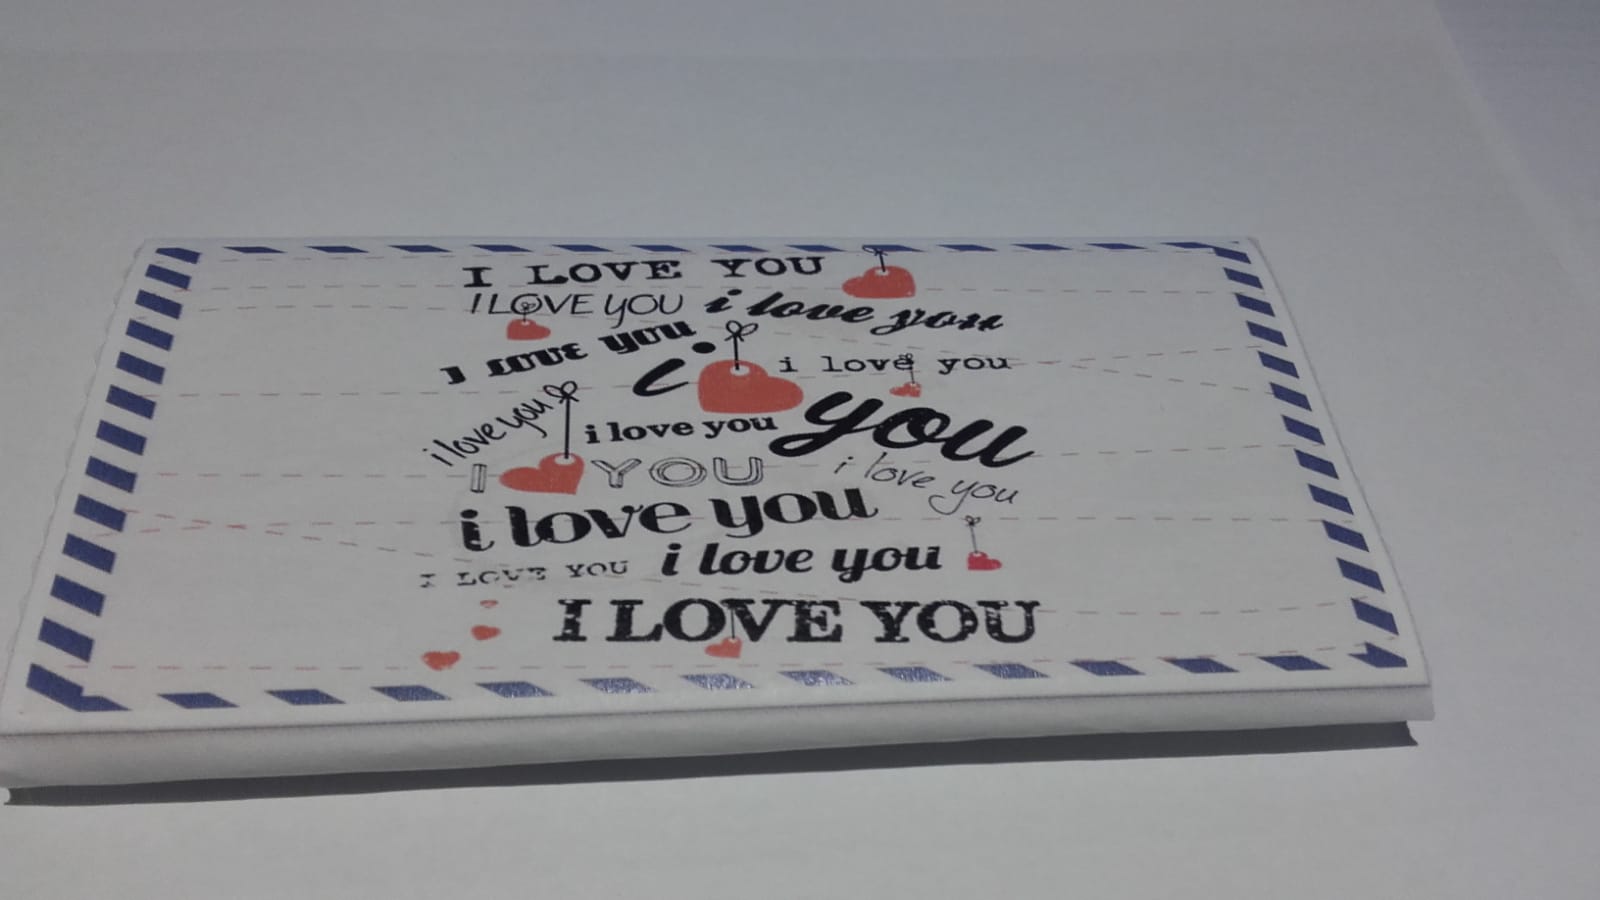 I LOVE YOU
I LOVE YOU i love you
I LOVE YOU
i you
i love you
i love you
i love you
I YOU
i love you
i love you
I LOVE YOU i love you
I LOVE YOU